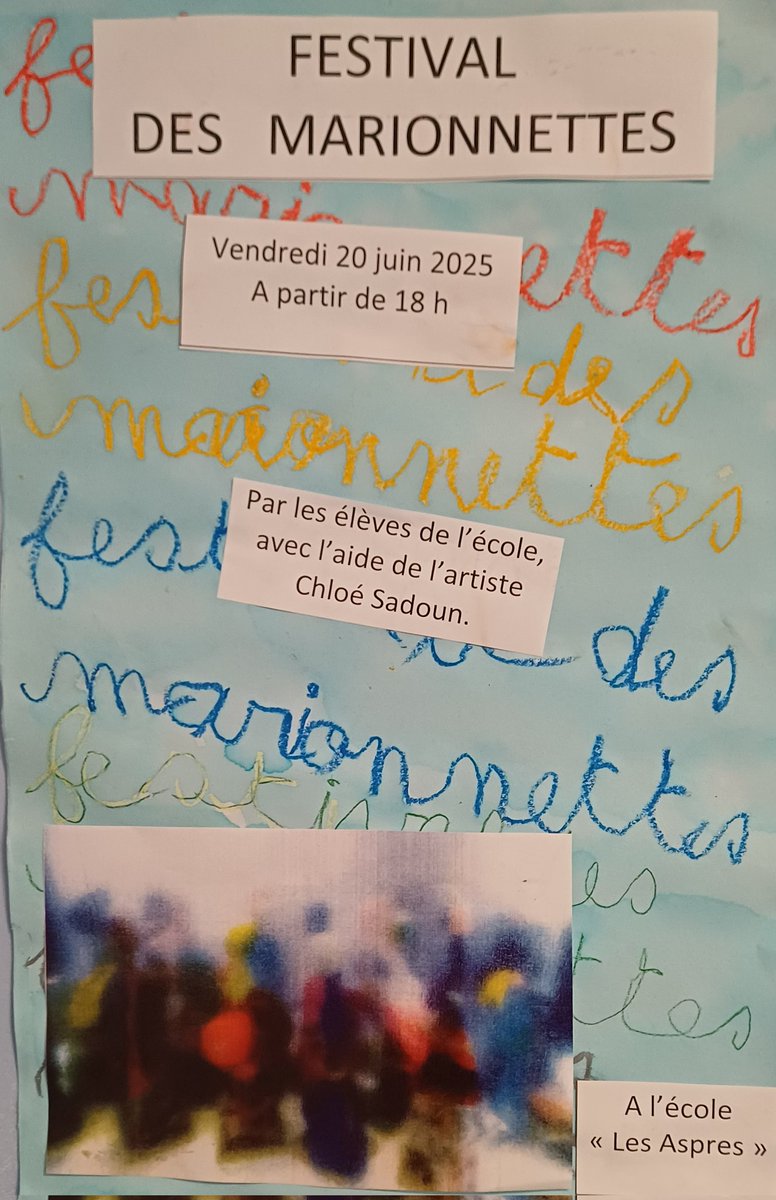 FESTIVAL
DES MARIONNETTES
Vendredi 20 juin 2025
A partir de 18 h
ettes
des
maionnettes
Par les élèves de l'école,
avec l'aide de l'artiste
Chloé Sadoun.
fest
des
marionnettes
A l'école
« Les Aspres »